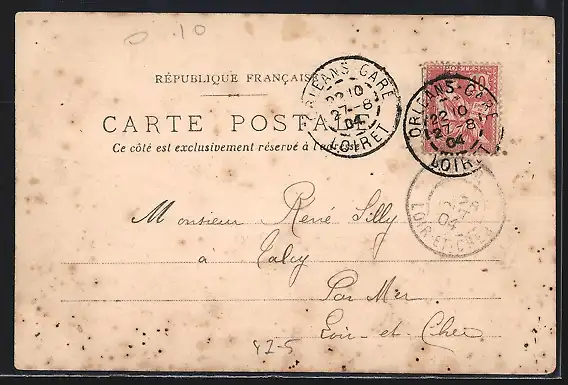 0.10
RÉPUBLIQUE FRANÇAISE
CARTE POSTALE
Ce côté est exclusivement réservé à l'adresse
ORLEANS-GARE
22 10
27-8
04
LOIRET
POSTES
10
ORLEANS-GARE
22 10
27-8
04
LOIRET
04
LOIR-ET-CHER
Monsieur René Silly
à Talcy
Par Mer
Loir-et-Cher
42-5